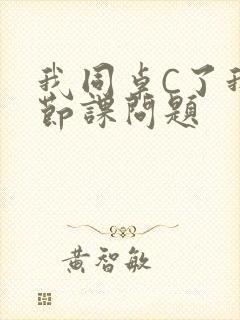 我同卓C了我
節課問題
黃智敏